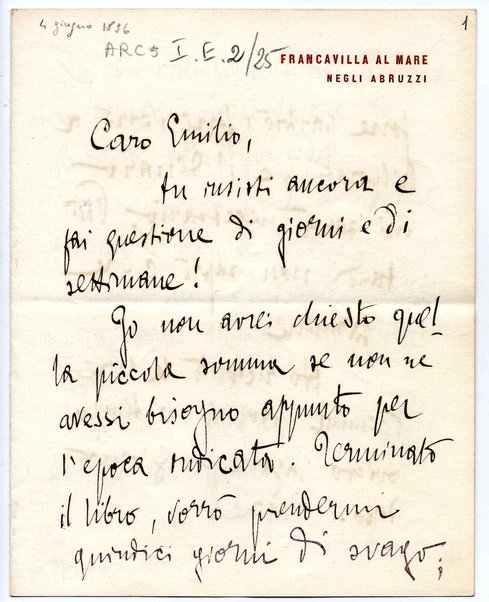 4 giugno 1896
1
ARC 5 I.E.2/25
FRANCAVILLA AL MARE
NEGLI ABRUZZI
Caro Emilio,
tu insisti ancora e
fai questione di giorni e di
settimane!
Io non avrei chiesto quel-
la piccola somma se non ne
avessi bisogno appunto per
l'epoca indicata. Terminato
il libro, vorrò prendermi
quindici giorni di svago;